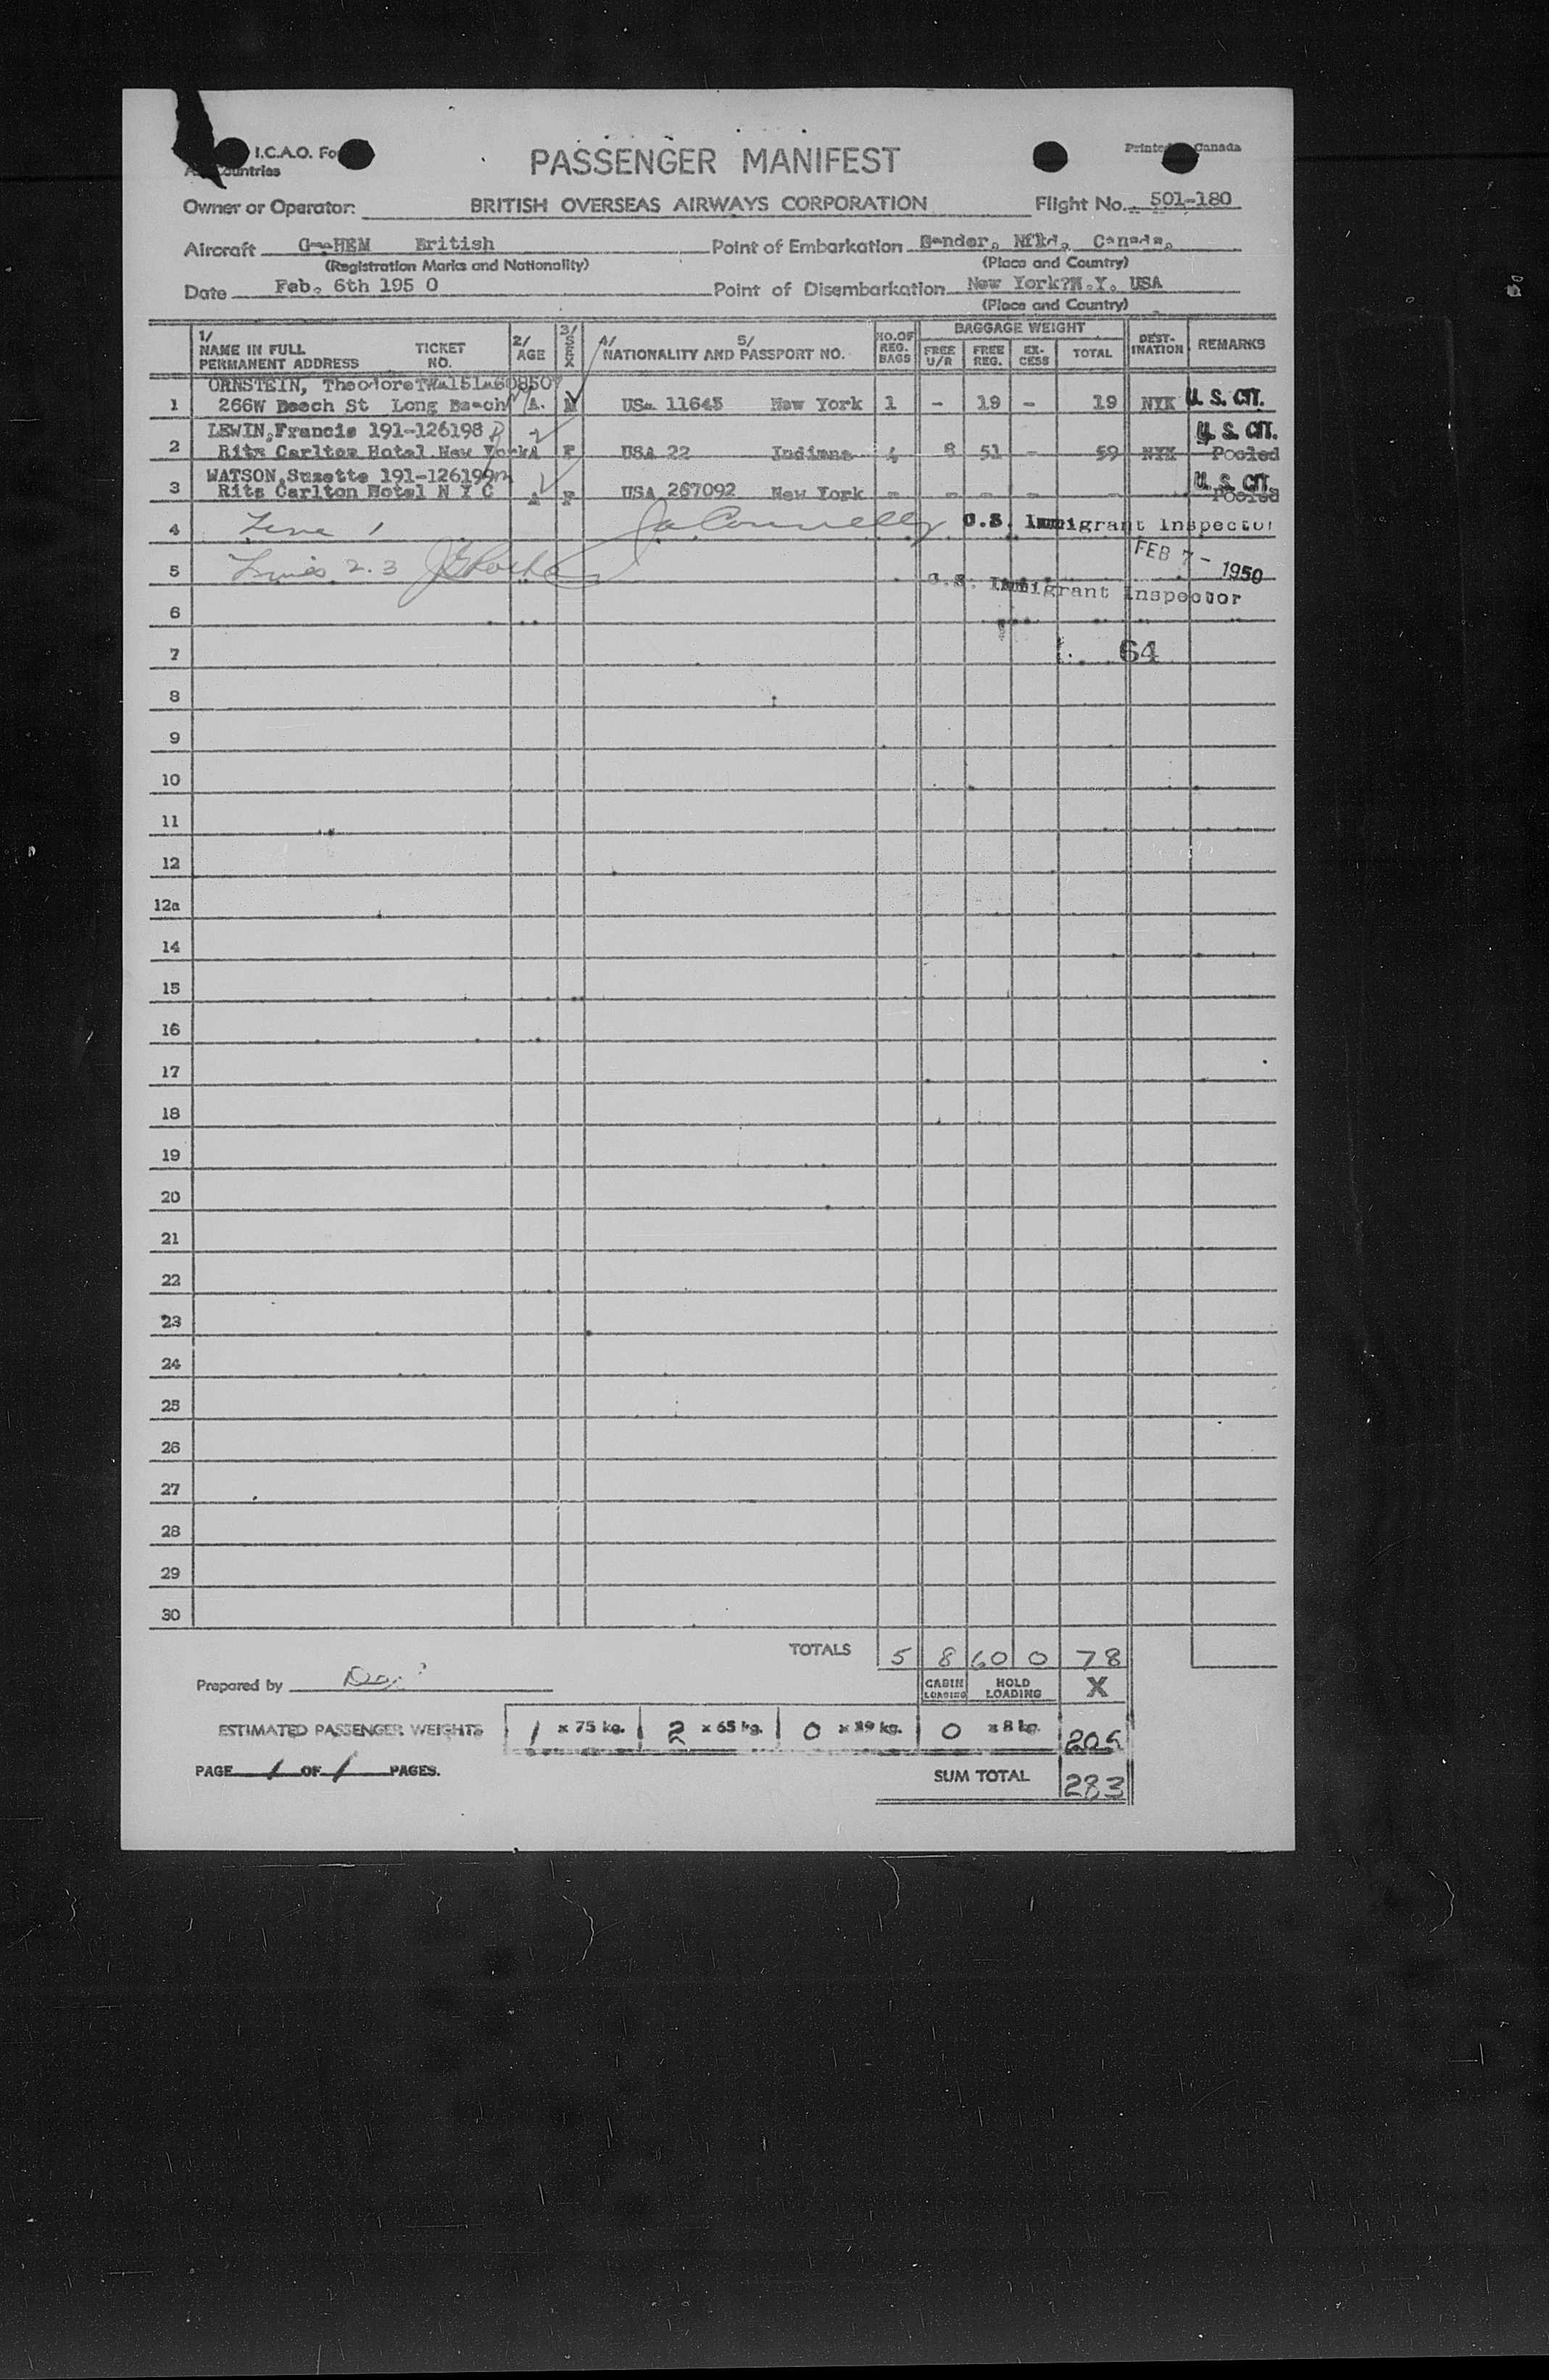 I.C.A.O. Fo
Countries
PASSENGER MANIFEST
Printed Canada
Owner or Operator: BRITISH OVERSEAS AIRWAYS CORPORATION Flight No. 501-180
Aircraft G-AHEM British Point of Embarkation Gander, Nfld, Canada,
(Registration Marks and Nationality) (Place and Country)
Date Feb. 6th 195 0 Point of Disembarkation New York?N.Y. USA
(Place and Country)
1/ NAME IN FULL PERMANENT ADDRESS TICKET NO. 2/ AGE 3/ SEX 4/ NATIONALITY AND 5/ PASSPORT NO. NO. OF REG. BAGS BAGGAGE WEIGHT FREE U/R FREE REG. EX-CESS TOTAL DEST-INATION REMARKS
ORNSTEIN, Theodore
1 266W Beech St Long Beach A. M 11645 New York 1 - 19 - 19 NYK U. S. CIT.
LEWIN, Francis 191-126198 U. S. CIT.
2 Ritz Carlton Hotel New York A F USA 22 Indiana 4 8 51 - 59 NYK Pooled
WATSON, Suzette 191-126199 U. S. CIT.
3 Ritz Carlton Hotel N Y C A F USA 267092 New York - - - - - Pooled
4 Line 1 U.S. Immigrant Inspector
FEB 7 - 1950
5 Lines 2.3
U.S. Immigrant Inspector
6
7 64
8
9
10
11
12
12a
14
15
16
17
18
19
20
21
22
23
24
25
26
27
28
29
30
TOTALS 5 8 60 0 78
Prepared by CABIN LOADING HOLD LOADING X
ESTIMATED PASSENGER WEIGHTS 1 x 75 kg. 2 x 65 kg. 0 x 39 kg. 0 x 8 kg. 205
PAGE 1 OF 1 PAGES. SUM TOTAL 283